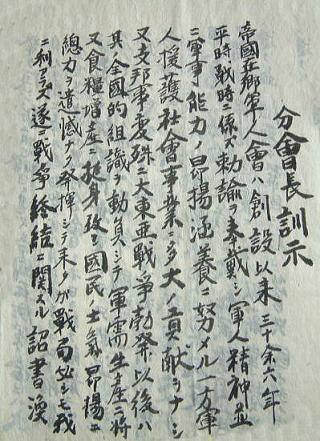 分會長訓示
帝國在郷軍人會ハ創設以来三十余六年
平時戦時ニ係ズ勅諭ヲ奉戴シ軍人精神並
ニ軍事能力ノ昂揚涵養ニ努メル一方軍
人援護社會事業ニ多大ノ貢献ヲナシ
又支那事変殊ニ大東亜戦争勃発以後ハ
其ノ全國的組識ヲ動員シテ軍需生産ニ将
又食糧増産ニ挺身敢テ國民ノ士氣昂揚ニ
總力ヲ遺憾ナク発揮シテ来タガ戦局必シモ我
ニ利アラズ遂ニ戦争終結ニ関スル詔書渙